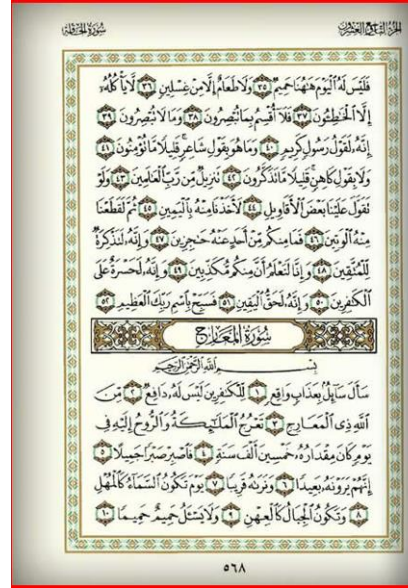 سُورَةُ الحَاقَّةِ الجُزْءُ التَّاسِعُ وَالعِشْرُونَ
فَلَيْسَ لَهُ ٱلْيَوْمَ هَٰهُنَا حَمِيمٌ ٣٥ وَلَا طَعَامٌ إِلَّا مِنْ غِسْلِينٍ ٣٦ لَّا يَأْكُلُهُۥٓ
إِلَّا ٱلْخَٰطِـُٔونَ ٣٧ فَلَآ أُقْسِمُ بِمَا تُبْصِرُونَ ٣٨ وَمَا لَا تُبْصِرُونَ ٣٩
إِنَّهُۥ لَقَوْلُ رَسُولٍ كَرِيمٍ ٤٠ وَمَا هُوَ بِقَوْلِ شَاعِرٍ ۚ قَلِيلًا مَّا تُؤْمِنُونَ ٤١
وَلَا بِقَوْلِ كَاهِنٍ ۚ قَلِيلًا مَّا تَذَكَّرُونَ ٤٢ تَنزِيلٌ مِّن رَّبِّ ٱلْعَٰلَمِينَ ٤٣ وَلَوْ
تَقَوَّلَ عَلَيْنَا بَعْضَ ٱلْأَقَاوِيلِ ٤٤ لَأَخَذْنَا مِنْهُ بِٱلْيَمِينِ ٤٥ ثُمَّ لَقَطَعْنَا
مِنْهُ ٱلْوَتِينَ ٤٦ فَمَا مِنكُم مِّنْ أَحَدٍ عَنْهُ حَٰجِزِينَ ٤٧ وَإِنَّهُۥ لَتَذْكِرَةٌ
لِّلْمُتَّقِينَ ٤٨ وَإِنَّا لَنَعْلَمُ أَنَّ مِنكُم مُّكَذِّبِينَ ٤٩ وَإِنَّهُۥ لَحَسْرَةٌ عَلَى
ٱلْكَٰفِرِينَ ٥٠ وَإِنَّهُۥ لَحَقُّ ٱلْيَقِينِ ٥١ فَسَبِّحْ بِٱسْمِ رَبِّكَ ٱلْعَظِيمِ ٥٢
سُورَةُ المَعَارِجِ
بِسْمِ ٱللَّهِ ٱلرَّحْمَٰنِ ٱلرَّحِيمِ
سَأَلَ سَآئِلٌۢ بِعَذَابٍ وَاقِعٍ ١ لِّلْكَٰفِرِينَ لَيْسَ لَهُۥ دَافِعٌ ٢ مِّنَ
ٱللَّهِ ذِى ٱلْمَعَارِجِ ٣ تَعْرُجُ ٱلْمَلَٰٓئِكَةُ وَٱلرُّوحُ إِلَيْهِ فِى
يَوْمٍ كَانَ مِقْدَارُهُۥ خَمْسِينَ أَلْفَ سَنَةٍ ٤ فَٱصْبِرْ صَبْرًا جَمِيلًا ٥
إِنَّهُمْ يَرَوْنَهُۥ بَعِيدًا ٦ وَنَرَىٰهُ قَرِيبًا ٧ يَوْمَ تَكُونُ ٱلسَّمَآءُ كَٱلْمُهْلِ
٨ وَتَكُونُ ٱلْجِبَالُ كَٱلْعِهْنِ ٩ وَلَا يَسْـَٔلُ حَمِيمٌ حَمِيمًا ١٠
٥٦٨